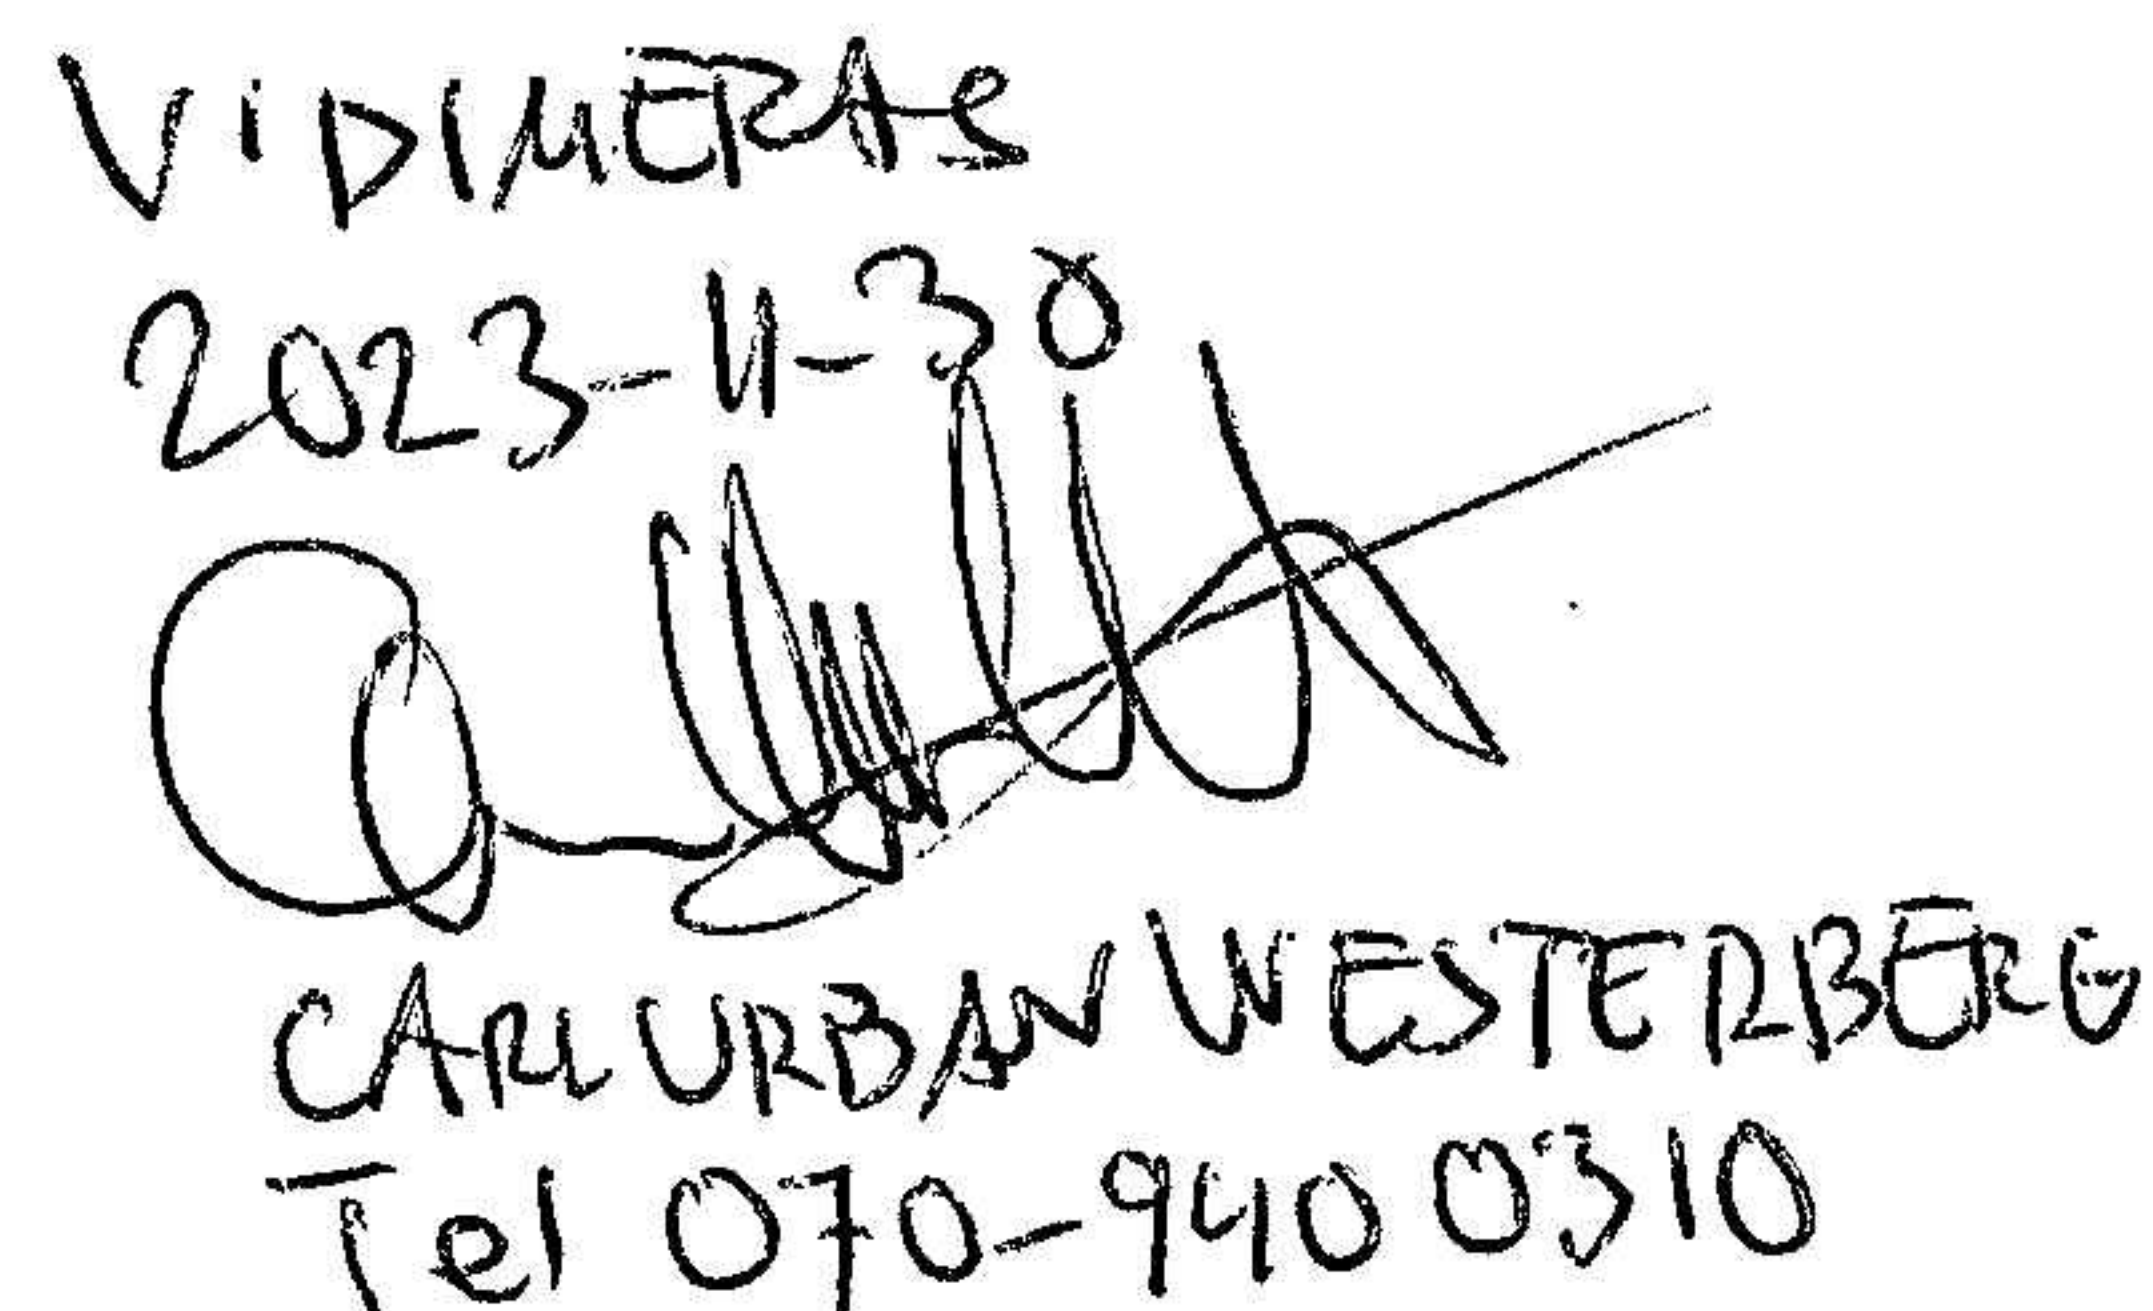 VIDIMERAS
2023-11-30
CARL URBAN WESTERBERG
Tel 070-940 0310